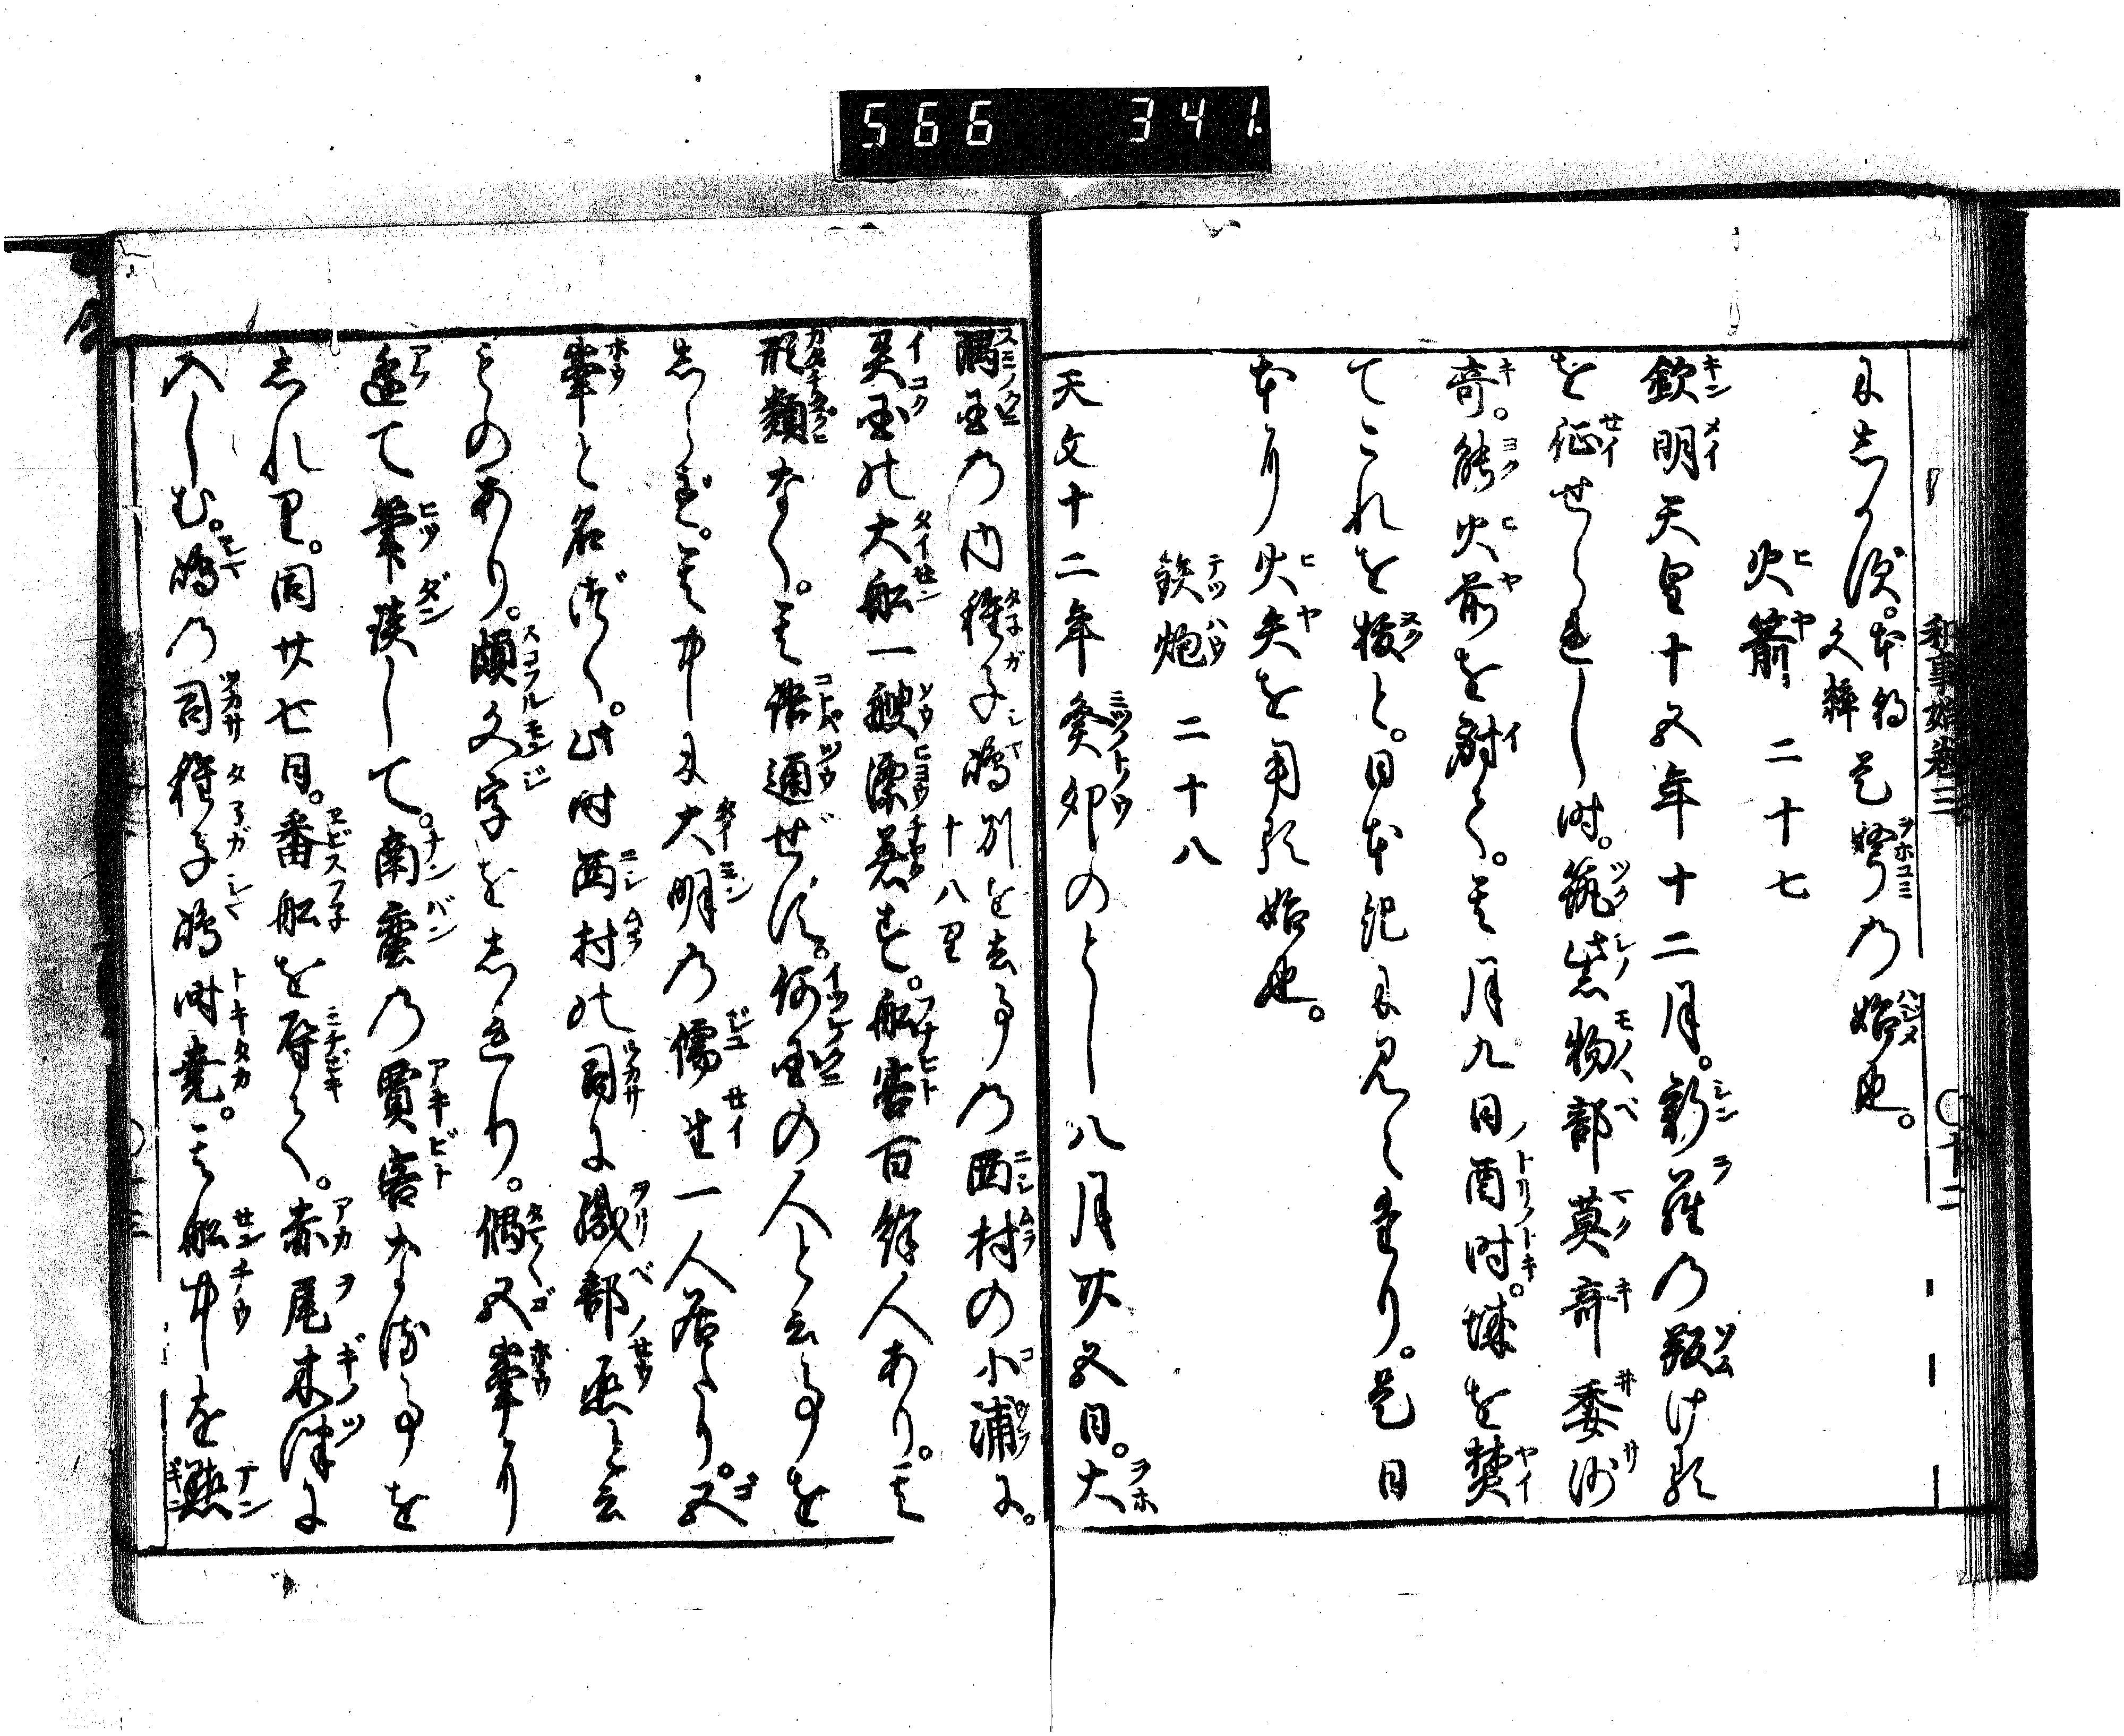 566 341.
和事始巻三 〇十二
にしるす。本朝文粋是弩の始也。
火箭 二十七
欽明天皇十五年十二月。新羅の叛ける
を征せられし時。筑紫物部莫奇委沙
奇。能火箭を射る。其月九日酉時。城を焚
てこれを抜と。日本紀に見えたり。是日
本り火矢を用る始也。
鉄炮 二十八
天文十二年癸卯のとし八月廿五日。大
隅国の内種子嶋別を去事十八里の西村の小浦に。
異国の大船一艘漂着す。船客百餘人あり。其
形類なく。其語通ぜず。何国の人と云事を
しらず。其中に大明の儒生一人居たり。五
峯と名づく。此時西村の司に織部丞と云
ものあり。頗文字をしれり。偶五峯に
逢て筆談して。南蛮の賈客なる事を
しれり。同廿七日。番船を辟く。赤尾木津に
入しむ。嶋の司種子嶋時尭。其船中を點